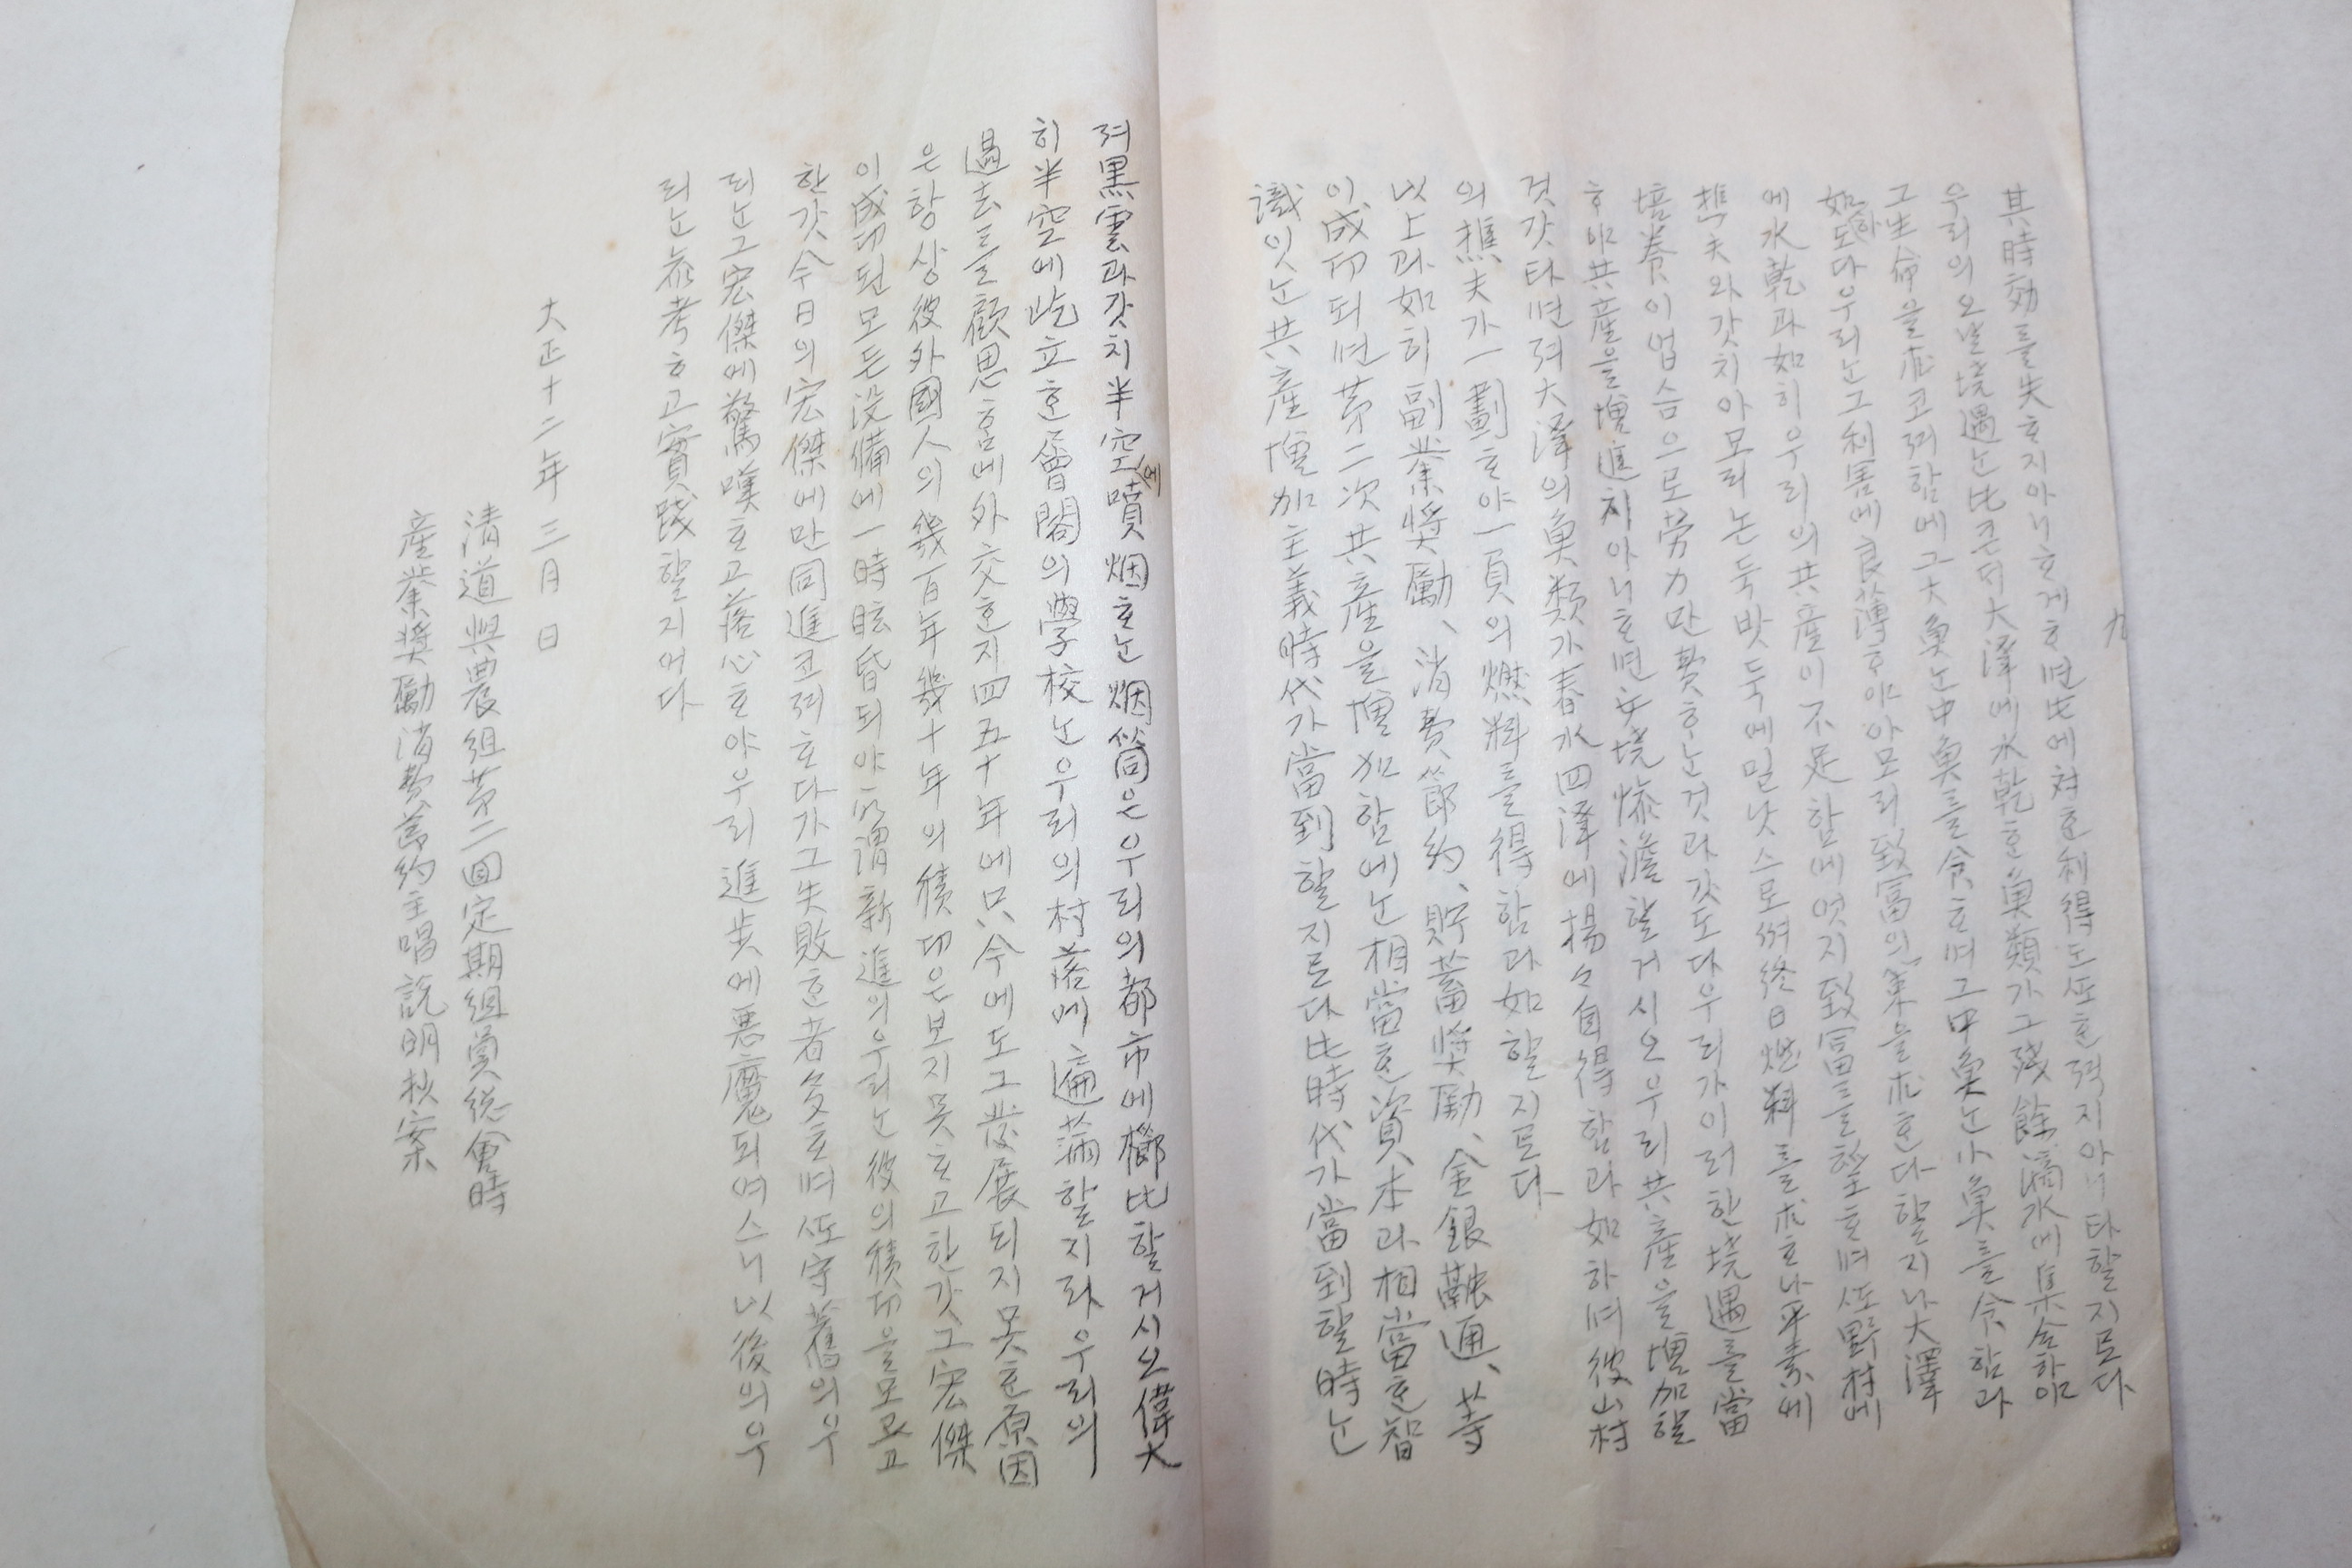 九
其時効를失호지아니호게호면此에対호利得도또호젹지아니타할지로다
우리의오날境遇는比컨대大澤에水乾호魚類가그殘餘滴水에集合하야
그生命을求코져함에그大魚는中魚를食호며그中魚는小魚를食함과
如하도다우리는그利害에良薄호야아모리致富의業을求혼다할지나大澤
에水乾과如히우리의共産이不足함에엇지致富를望호며또野村에
樵夫와갓치아모리논둑밧둑에밀낫스로써終日燃料를求호나平素에
培養이업슴으로勞力만費호는것과갓도다우리가이러한境遇를當
호야共産을增進치아니호면安境慘澹할거시오우리共産을增加할
것갓타면져大澤의魚類가春水四澤에揚々自得함과如하며彼山村
의樵夫가一劃호야一負의燃料를得함과如할지로다
以上과如히副業獎勵、消費節約、貯蓄獎勵、金銀融通、等
이成功되면第二次共産을增加함에는相當호資本과相當호智
識잇는共産增加主義時代가當到할지로다比時代가當到할時는
져黑雲과갓치半空에噴烟호는烟筒은우리의都市에櫛比할거시오偉大
히半空에屹立호層閣의學校는우리의村落에遍滿할지라우리의
過去를顧思호슴에外交혼지四五十年에只今에도그發展되지못호原因
은항상彼外國人의幾百年幾十年의積功은보지못호고한갓그宏傑
이成功된모든設備에一時眩昏되야所謂新進의우리는彼의積功을모르고
한갓今日의宏傑에만同進코져호다가그失敗호者多호며또守舊의우
리는그宏傑에驚嘆호고落心호야우리進步에惡魔되여스니以後의우
리는參考호고實踐할지어다
大正十二年三月 日
清道興農組第二回定期組員総會時
産業獎勵消費節約主唱說明秋案